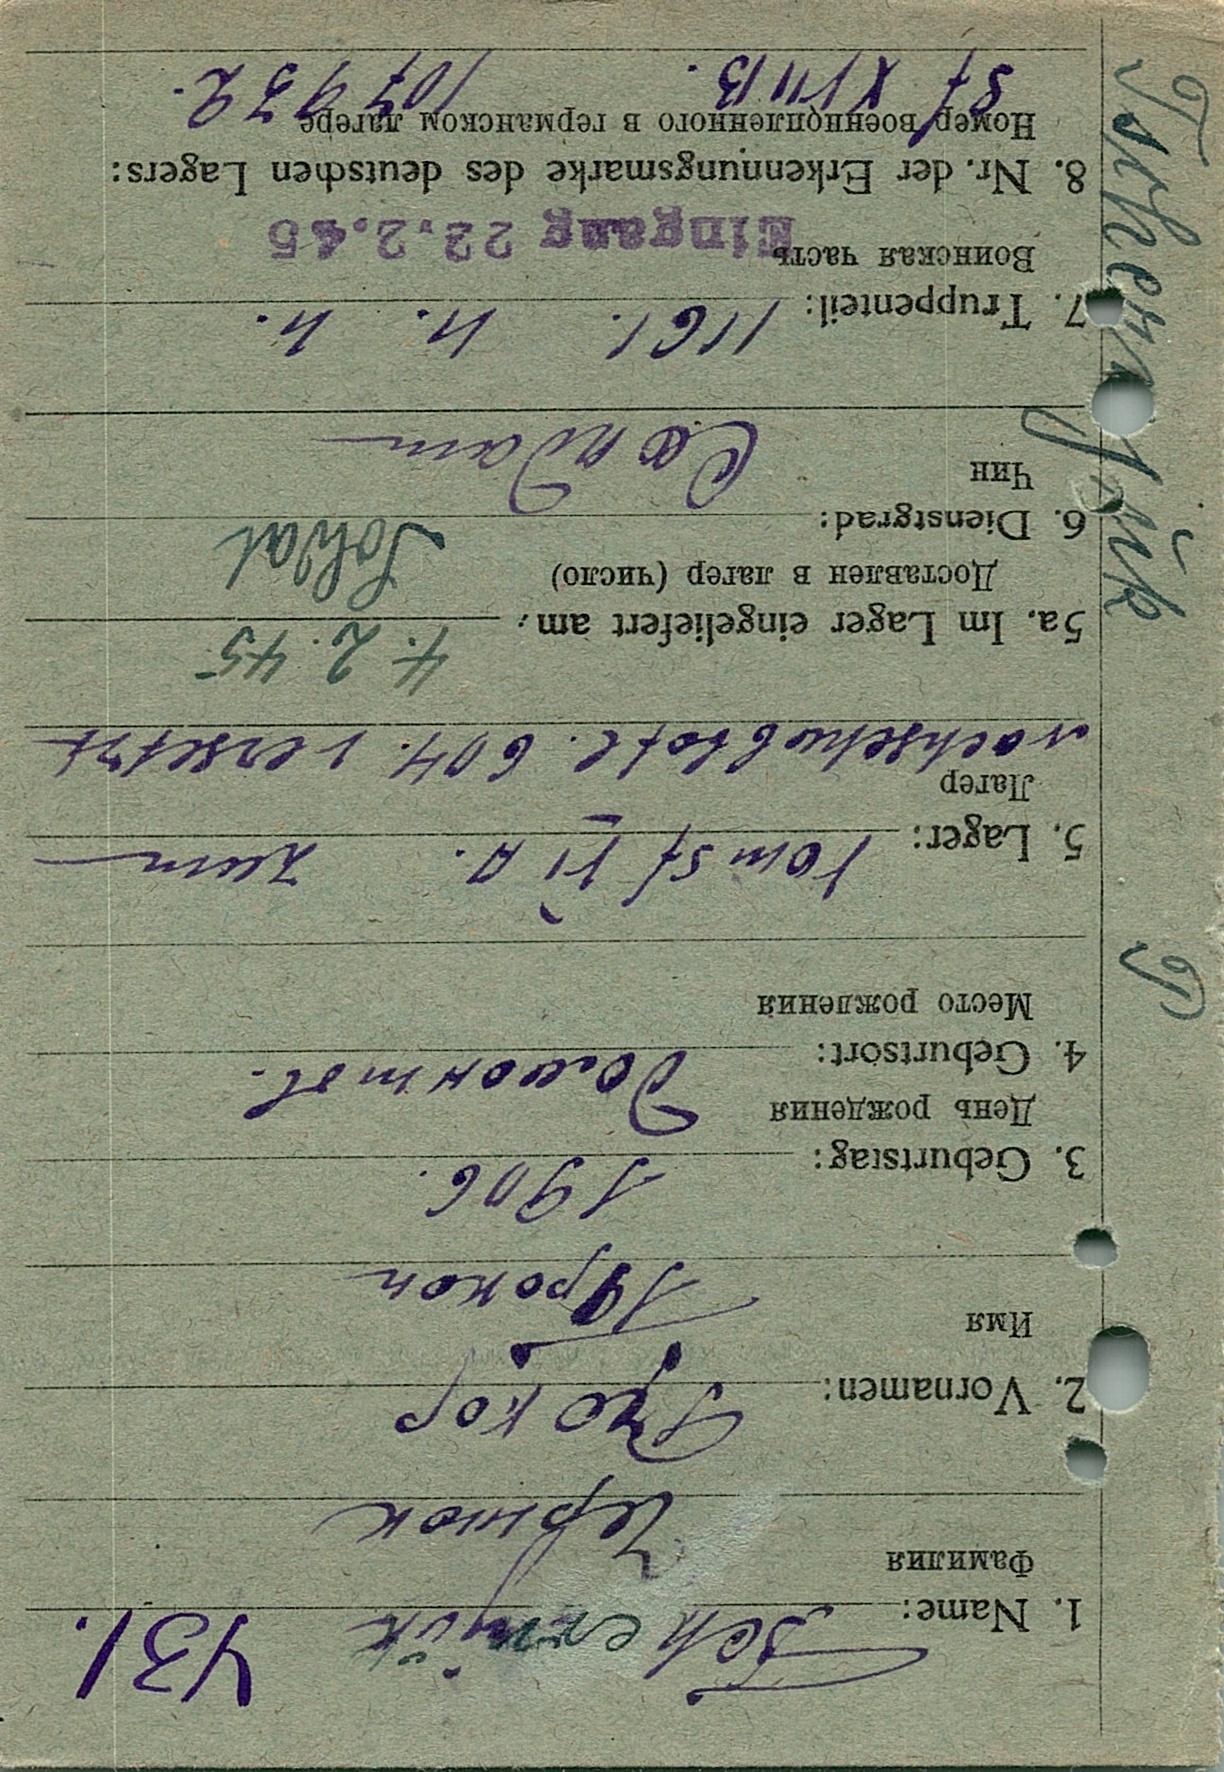 431.
1. Name: Tschernjuk
Фамилия
Чернюк
2. Vornamen: Prokop
Имя
Прокоп
3. Geburtstag: 1906.
День рождения
4. Geburtsort:
Место рождения
5. Lager: vom St VI A. zum
Лагер
Nachschubbtal. 604. versetzt
5a. Im Lager eingeliefert am: 4.2.45
Доставлен в лагер (число)
6. Dienstgrad: Soldat
Чин
Солдат
7. Truppenteil: 1161. п. п.
Воинская часть
Eingang 22.2.45
8. Nr. der Erkennungsmarke des deutschen Lagers:
Номер военнопленного в германском лагере
St XVIII B. 107932.
Tschernjuk